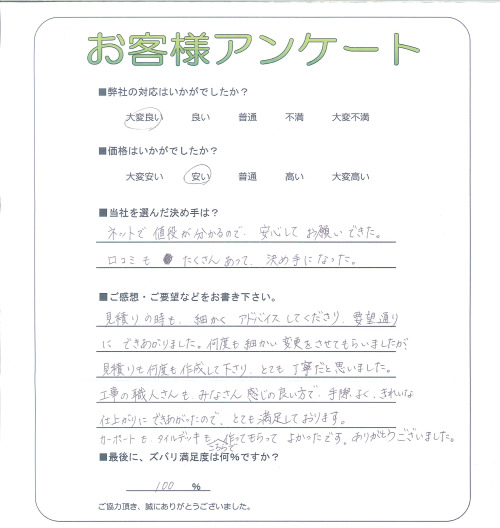 お客様アンケート
■弊社の対応はいかがでしたか？
大変良い 良い 普通 不満 大変不満
■価格はいかがでしたか？
大変安い 安い 普通 高い 大変高い
■当社を選んだ決め手は？
ネットで 値段が分かるので、安心して お願いできた。
口コミも たくさんあって、決め手になった。
■ご感想・ご要望などをお書き下さい。
見積りの時も、細かく アドバイスしてくださり、要望通り
に できあがりました。何度も細かい変更をさせてもらいましたが、
見積りも何度も作成して下さり、とても丁寧だと思いました。
工事の職人さんも、みなさん感じの良い方で、手際よく、きれいな
仕上がりにできあがったので、とても満足しております。
カーポートも、タイルデッキも、こちらで作ってもらって よかったです。ありがとうございました。
■最後に、ズバリ満足度は何%ですか？
100 %
ご協力頂き、誠にありがとうございました。